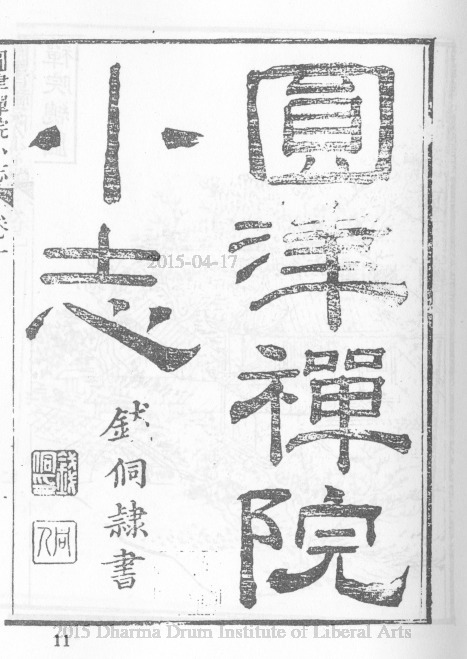 圓津禪院
小志
侗隸書
圓津禪院小志
2015-04-17
11
2015 Dharma Drum Institute of Liberal Arts